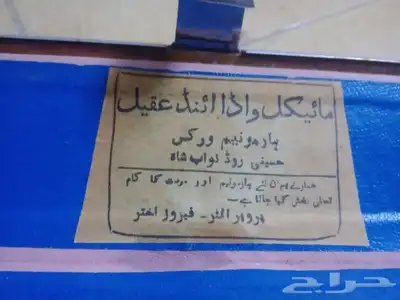 مائیکل واڈا ائنڈ عقیل
ہارمونیم ورکس
حسینی روڈ نواب شاہ
ہمارے یہاں نئے ہارمونیم اور مرمت کا کام
تسلی بخش کیا جاتا ہے
پروپرائٹر - فیروز اختر
حراج